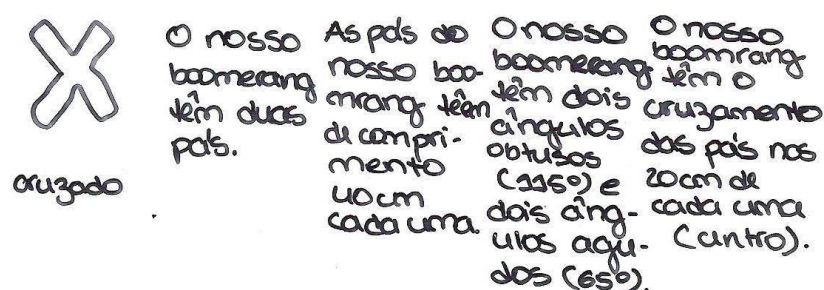 cruzado
O nosso
boomerang
têm duas
pás.
As pás do
nosso boo-
mrang têem
de compri-
mento
40cm
cada uma.
O nosso
boomerang
têm dois
ângulos
obtusos
(115º) e
dois âng-
ulos agu-
dos (65º).
O nosso
boomrang
têm o
cruzamento
das pás nos
20cm de
cada uma
(centro).